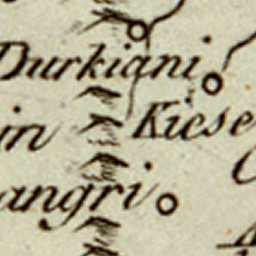 Durkiani
in Kiese
angri